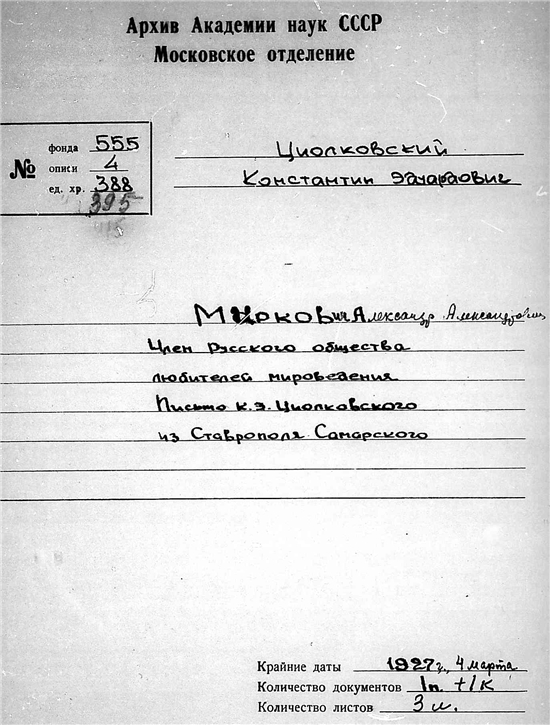 Архив Академии наук СССР
Московское отделение
№
фонда 555
описи 4
ед. хр. 388
395
Циолковский
Константин Эдуардович
Александр Александрович
Член Русского общества
любителей мироведения
Письмо К.Э. Циолковского
из Ставрополя Самарского
Крайние даты 1927г., 4 марта
Количество документов 1п. +1к
Количество листов 3 л.